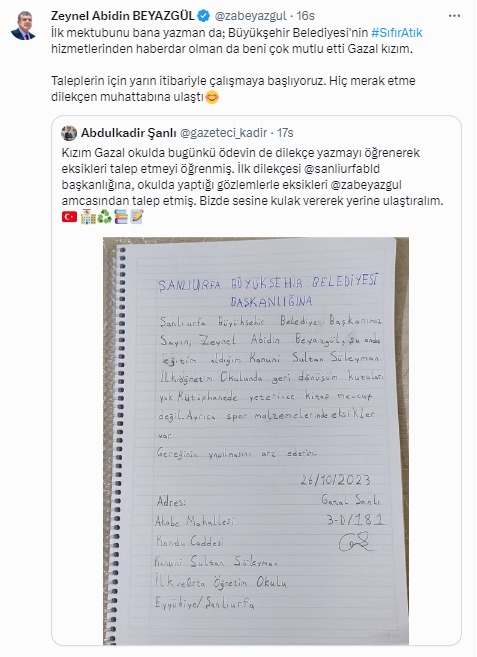 Zeynel Abidin BEYAZGÜL @zabeyazgul · 16s
İlk mektubunu bana yazman da; Büyükşehir Belediyesi'nin #SıfırAtık
hizmetlerinden haberdar olman da beni çok mutlu etti Gazal kızım.
Taleplerin için yarın itibariyle çalışmaya başlıyoruz. Hiç merak etme
dilekçen muhattabına ulaştı😊
Abdulkadir Şanlı @gazeteci_kadir · 17s
Kızım Gazal okulda bugünkü ödevin de dilekçe yazmayı öğrenerek
eksikleri talep etmeyi öğrenmiş. İlk dilekçesi @sanliurfabld
başkanlığına, okulda yaptığı gözlemlerle eksikleri @zabeyazgul
amcasından talep etmiş. Bizde sesine kulak vererek yerine ulaştıralım.
🇹🇷🏫♻️📚📝
ŞANLIURFA BÜYÜKŞEHİR BELEDİYESİ
BAŞKANLIĞINA
Şanlıurfa Büyükşehir Belediye Başkanımız
Sayın, Zeynel Abidin Beyazgül, şu anda
eğitim aldığım Kanuni Sultan Süleyman
İlköğretim Okulunda geri dönüşüm kutuları
yok. Kütüphanede yeterince kitap mevcut
değil. Ayrıca spor malzemelerinde eksikler
var.
Gereğinin yapılmasını arz ederim.
26/10/2023
Adres: Gazal Şanlı
Akabe Mahallesi 3-D/181
Kendu Caddesi
Kanuni Sultan Süleyman
İlk ve Orta Öğretim Okulu
Eyyübiye/Şanlıurfa